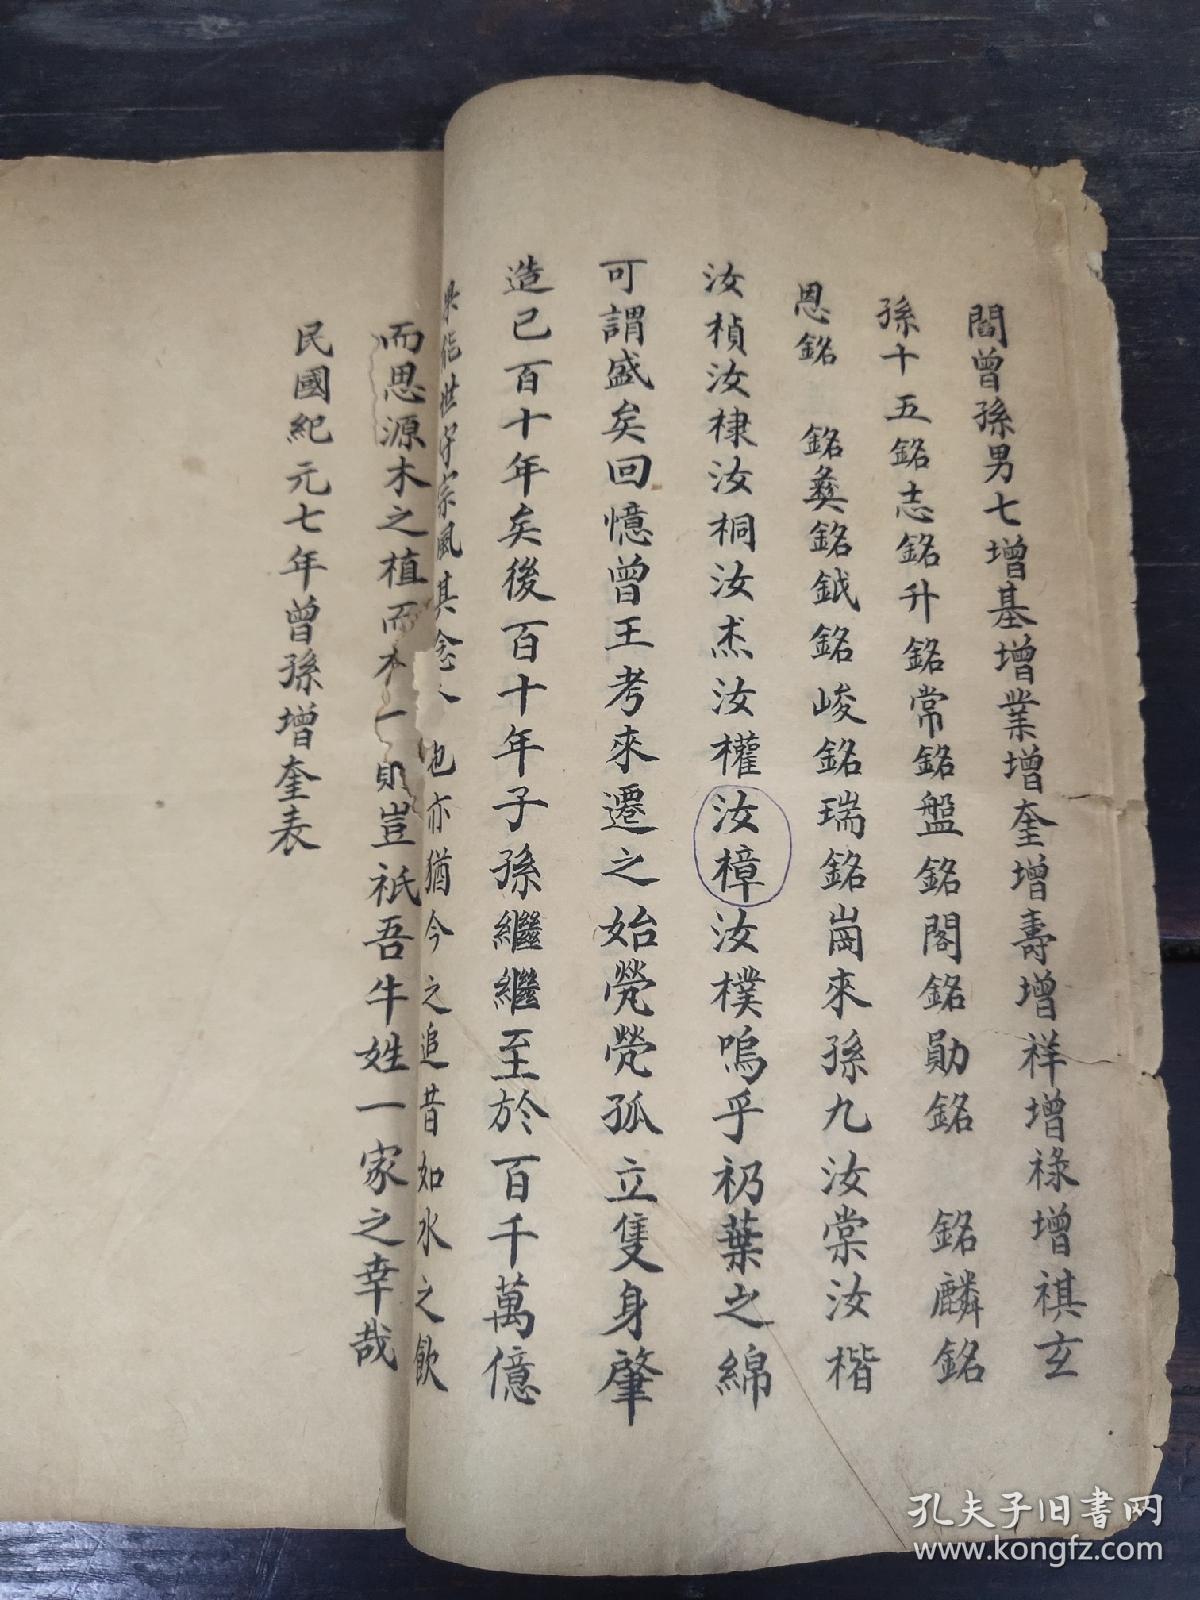 閻曾孫男七增基增業增奎增壽增祥增祿增祺玄
孫十五銘志銘升銘常銘盤銘閣銘勛銘 銘麟銘
恩銘 銘彝銘鉞銘峻銘瑞銘崗來孫九汝棠汝楷
汝楨汝棣汝桐汝杰汝權汝樟汝樸嗚乎礽葉之綿
可謂盛矣回憶曾王考來遷之始煢煢孤立隻身肇
造已百十年矣後百十年子孫繼繼至於百千萬億
世守宗風其念 也亦猶今之追昔如水之飲
而思源木之植而本一則豈祇吾牛姓一家之幸哉
民國紀元七年曾孫增奎表
孔夫子旧书网
www.kongfz.com